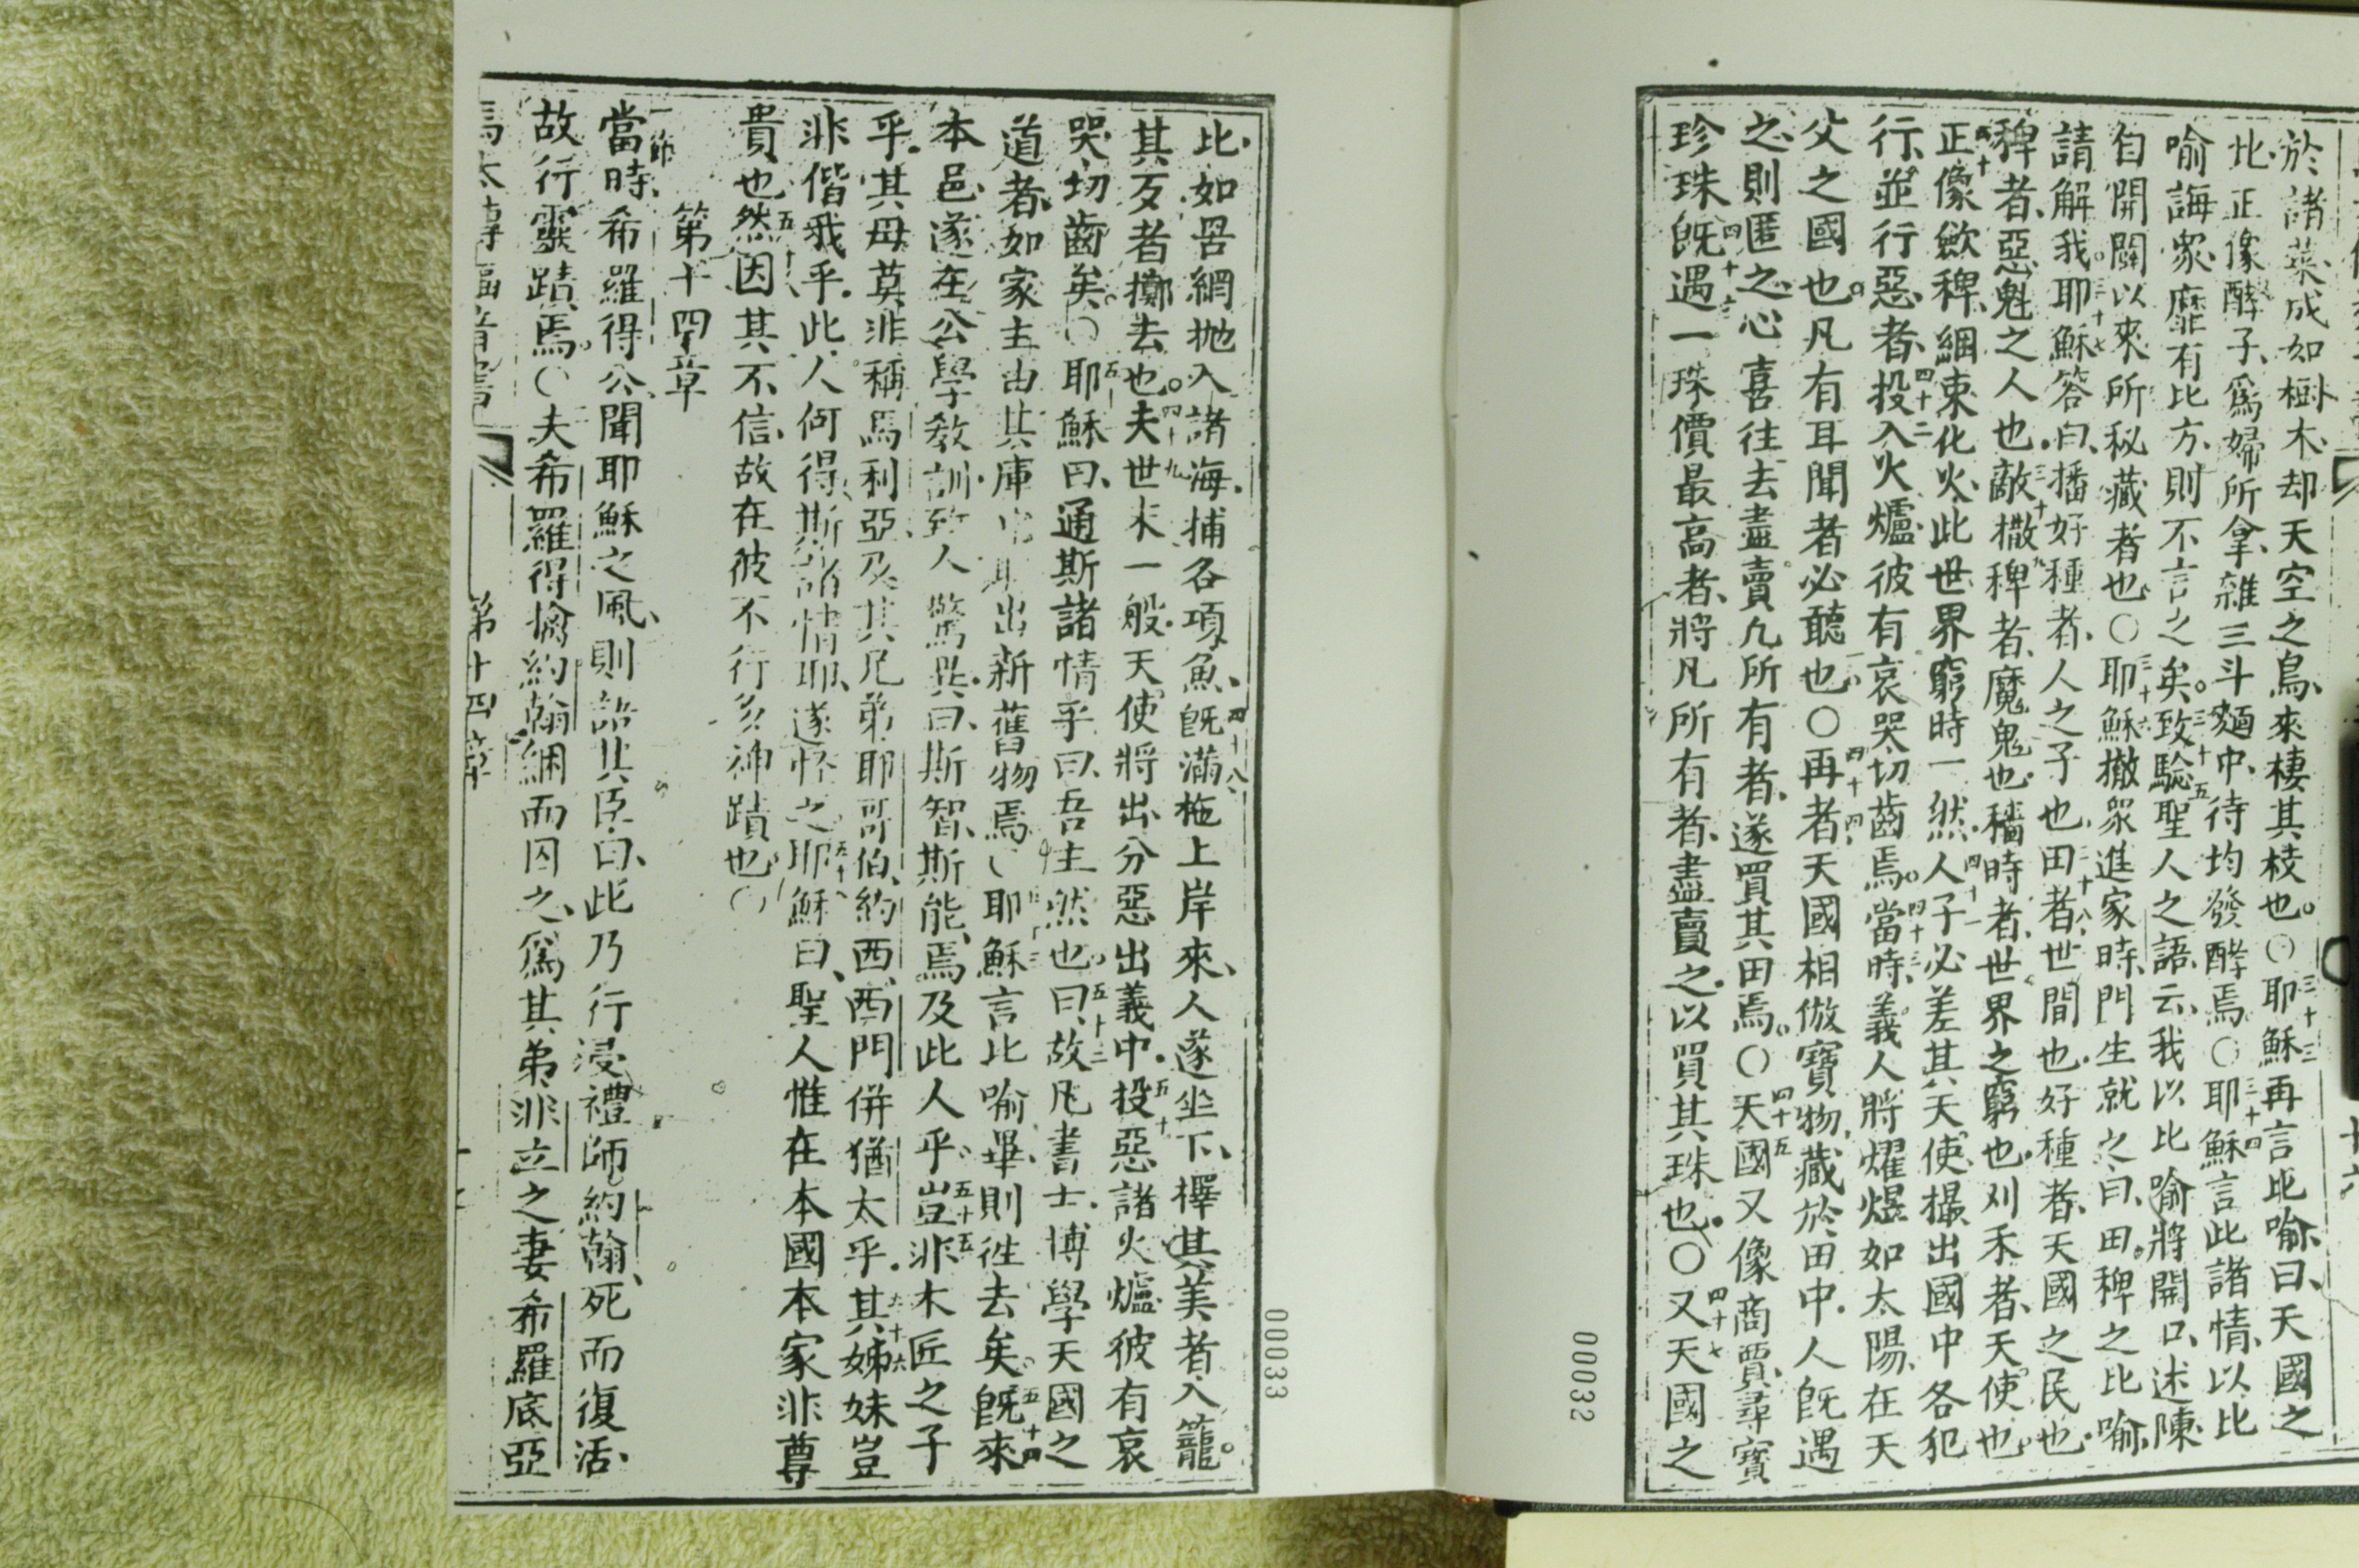 於諸菜成如樹木却天空之鳥來棲其枝也。〇耶穌再言比喻曰天國之
比正像酵子爲婦所拿雜三斗麵中待均發酵焉。〇耶穌言此諸情以比
喻誨眾靡有比方則不言之矣致驗聖人之語云我以比喻將開口述陳
自開闢以來所秘藏者也。〇耶穌撤眾進家時門生就之曰田稗之比喻
請解我耶穌答曰播好種者人之子也田者世間也好種者天國之民也
稗者惡魁之人也敵撒稗者魔鬼也穡時者世界之窮也刈禾者天使也
正像歛稗綑束化火此世界窮時一然人子必差其天使撮出國中各犯
行並行惡者投入火爐彼有哀哭切齒焉當時義人將燿煜如太陽在天
父之國也凡有耳聞者必聽也〇再者天國相倣寶物藏於田中人既遇
之則匿之心喜往去盡賣凡所有者遂買其田焉。〇天國又像商賈尋寶
珍珠既遇一珠價最高者將凡所有者盡賣之以買其珠也。〇又天國之
00032
比如罟網抛入諸海捕各項魚既滿柂上岸來人遂坐下擇其美者入籠。
其歹者擲去也夫世末一般天使將出分惡出義中投惡諸火爐彼有哀
哭切齒矣〇耶穌曰通斯諸情乎曰吾主然也曰故凡書士博學天國之
道者如家主由其庫中取出新舊物焉〇耶穌言比喻畢則徃去矣既來
本邑遂在公學教訓致人驚異曰斯智斯能焉及此人乎豈非木匠之子
乎其母莫非稱馬利亞及其兄弟耶哥伯約西西門併猶太乎其姊妹豈
非偕我乎此人何得斯諸情耶遂怪之耶穌曰聖人惟在本國本家非尊
貴也然因其不信故在彼不行多神蹟也〇
第十四章
當時希羅得公聞耶穌之風則語其臣曰此乃行浸禮師約翰死而復活
故行靈蹟焉〇夫希羅得擒約翰綑而囚之爲其弟非立之妻希羅底亞
馬太傳福音書 第十四章
00033